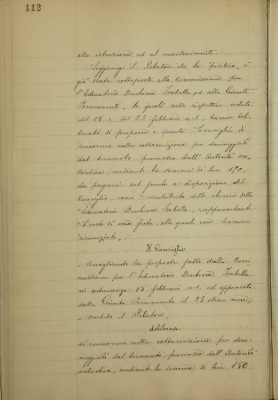 112
alla istruzione ed al mantenimento.
Soggiunge il Relatore che la pratica, è
già stata sottoposta alla Commissione per
l'Educatorio Duchessa Isabella ed alla Giunta
Permanente, le quali nelle rispettive sedute
del 15 e del 23 febbraio u.s., hanno deli-
berato di proporre a questo Consiglio di
concorrere nella sottoscrizione pei danneggiati
dal terremoto, promossa dall'Autorità
scolastica, mediante la somma di lire 150,
da pagarsi sul fondo a disposizione del
Consiglio, come contributo delle alunne dell'
Educatorio Duchessa Isabella, rappresentante
festa, alla quale esse hanno
rinunziato.
Il Consiglio
Accogliendo la proposta fatta dalla Com-
missione per l'Educatorio Duchessa Isabella
in adunanza 15 febbraio u.s. ed approvata
dalla Giunta Permanente il 23 stesso mese;
sentito il Relatore;
delibera
di concorrere nella sottoscrizione pei dan-
neggiati dal terremoto promossa dall'Autorità
scolastica, mediante la somma di lire 150